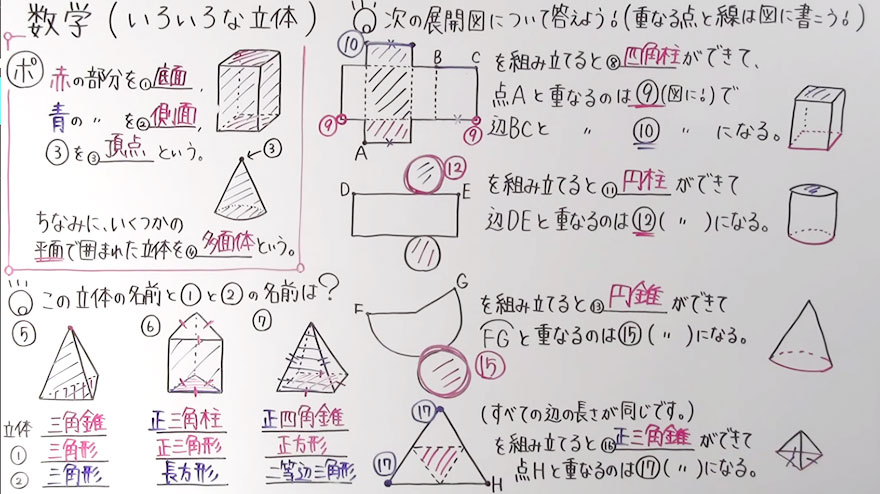 数学（いろいろな立体）
ポ
赤の部分を①底面，
青の〃を②側面，
③を③頂点という。
③
ちなみに、いくつかの
平面で囲まれた立体を④多面体という。
この立体の名前と①と②の名前は？
⑤ ⑥ ⑦
立体 三角錐 正三角柱 正四角錐
① 三角形 正三角形 正方形
② 三角形 長方形 二等辺三角形
次の展開図について答えよう！（重なる点と線は図に書こう！）
⑩ B C
⑨ ⑨
A
を組み立てると⑧四角柱ができて、
点Aと重なるのは⑨(図に！)で
辺BCと 〃 ⑩ 〃 になる。
⑫
D E
を組み立てると⑪円柱ができて
辺DEと重なるのは⑫(〃)になる。
F G
⑮
を組み立てると⑬円錐ができて
FGと重なるのは⑮(〃)になる。
⑰
⑰ H
(すべての辺の長さが同じです。)
を組み立てると⑯正三角錐ができて
点Hと重なるのは⑰(〃)になる。